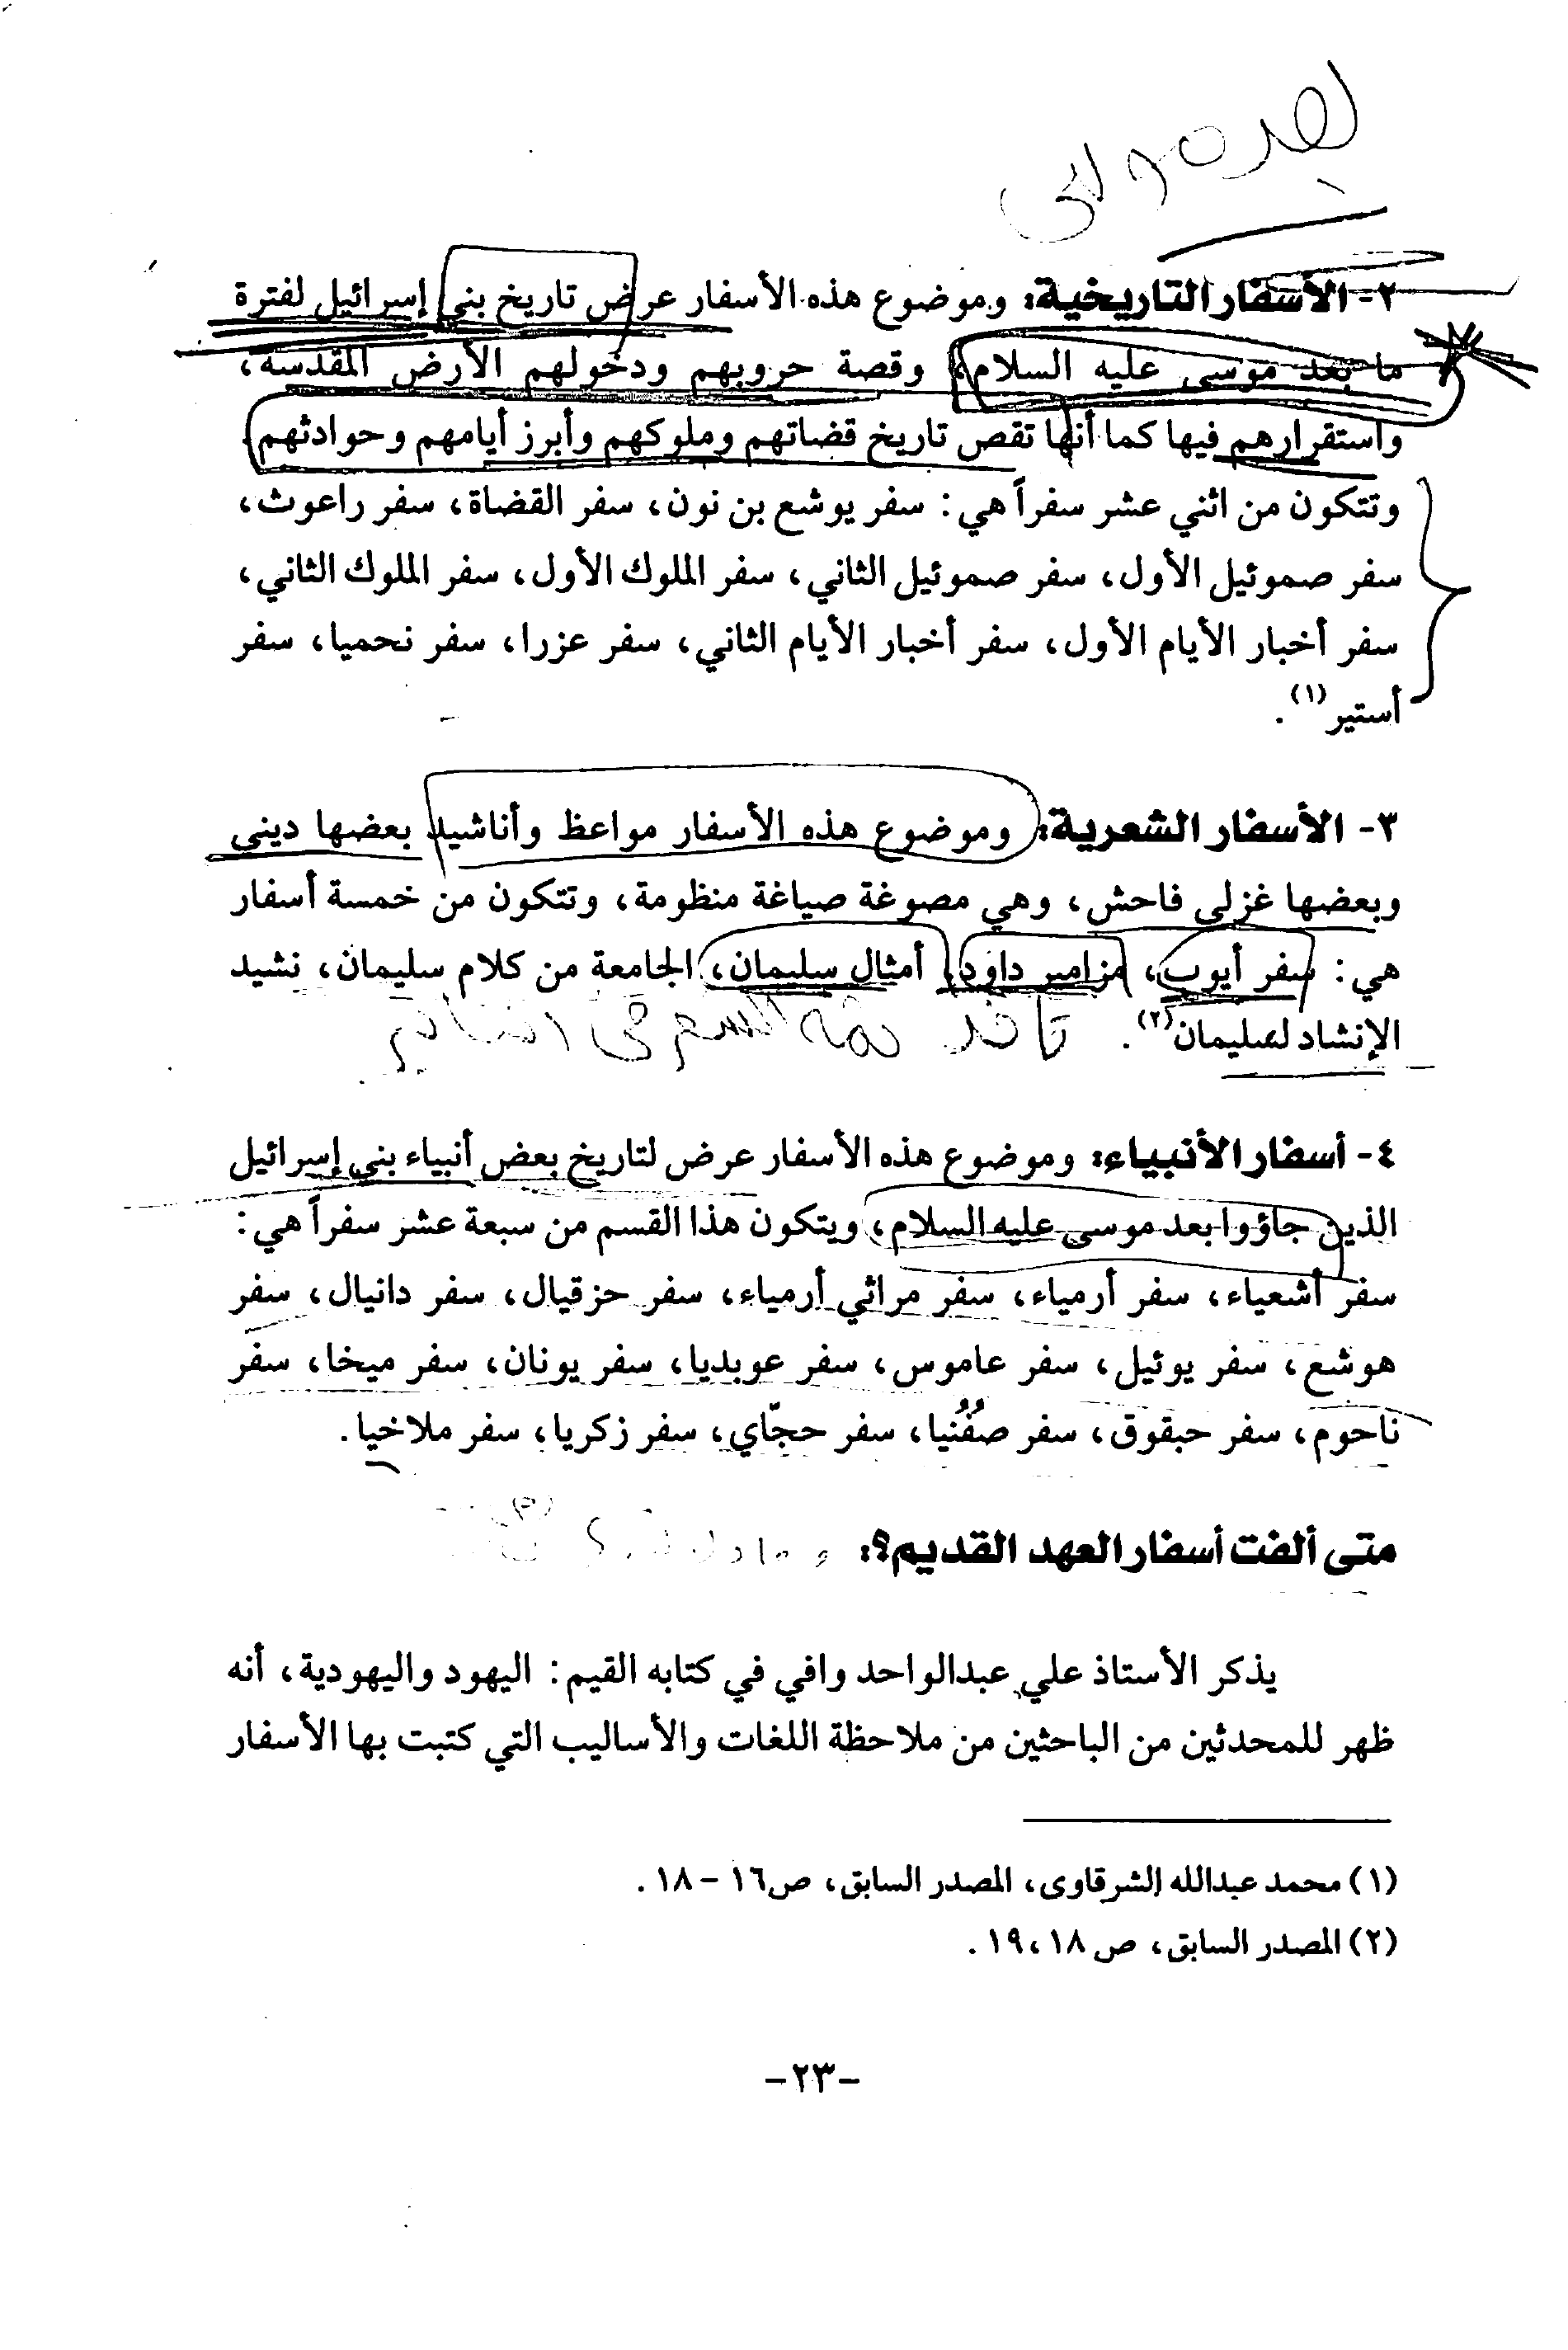 ٢- الأسفار التاريخية: وموضوع هذه الأسفار عرض تاريخ بني إسرائيل لفترة
ما بعد موسى عليه السلام، وقصة حروبهم ودخولهم الأرض المقدسة،
واستقرارهم فيها كما أنها تقص تاريخ قضاتهم وملوكهم وأبرز أيامهم وحوادثهم
وتتكون من اثني عشر سفراً هي: سفر يوشع بن نون، سفر القضاة، سفر راعوث،
سفر صموئيل الأول، سفر صموئيل الثاني، سفر الملوك الأول، سفر الملوك الثاني،
سفر أخبار الأيام الأول، سفر أخبار الأيام الثاني، سفر عزرا، سفر نحميا، سفر
أستير(١).
٣- الأسفار الشعرية: وموضوع هذه الأسفار مواعظ وأناشيد بعضها ديني
وبعضها غزلي فاحش، وهي مصوغة صياغة منظومة، وتتكون من خمسة أسفار
هي: سفر أيوب، مزامير داود، أمثال سليمان، الجامعة من كلام سليمان، نشيد
الإنشاد لسليمان(٢).
٤- أسفار الأنبياء: وموضوع هذه الأسفار عرض لتاريخ بعض أنبياء بني إسرائيل
الذين جاؤوا بعد موسى عليه السلام، ويتكون هذا القسم من سبعة عشر سفراً هي:
سفر أشعياء، سفر أرمياء، سفر مراثي أرمياء، سفر حزقيال، سفر دانيال، سفر
هوشع، سفر يوئيل، سفر عاموس، سفر عوبديا، سفر يونان، سفر ميخا، سفر
ناحوم، سفر حبقوق، سفر صُفُنيا، سفر حجّاي، سفر زكريا، سفر ملاخيا.
متى ألفت أسفار العهد القديم؟:
يذكر الأستاذ علي عبدالواحد وافي في كتابه القيم: اليهود واليهودية، أنه
ظهر للمحدثين من الباحثين من ملاحظة اللغات والأساليب التي كتبت بها الأسفار
(١) محمد عبدالله الشرقاوى، المصدر السابق، ص١٦ - ١٨.
(٢) المصدر السابق، ص ١٨، ١٩.
-٢٣-